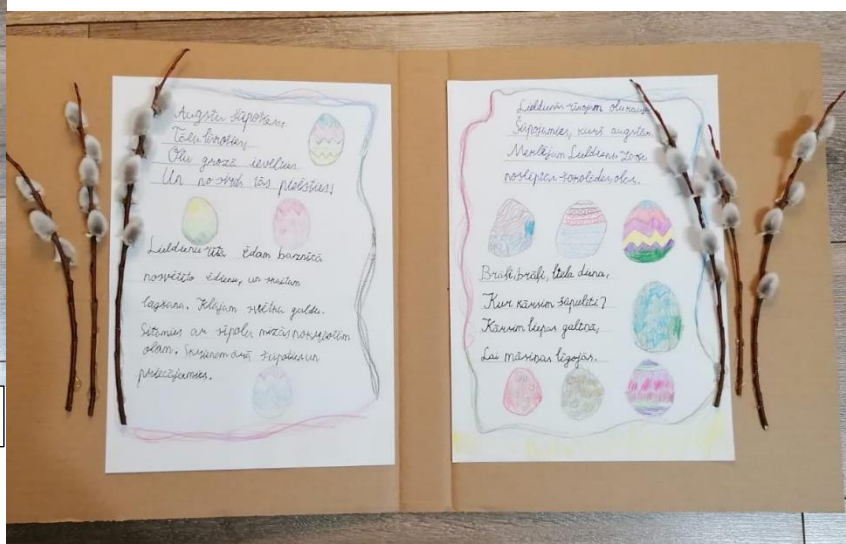 Augstu šūposim,
Tālu
Olu grozā ievelšus
Un no sirds tās
Lieldienu rītā ēdam baznīcā
nosvētīto ēdienu, un
Klājam svētku galdu.
Sitamies ar sīpolu mizās nokrāsotām
olām. Skrienam ārā šūpoties un

Lieldienās rīsojam olu kaujas
Šūpojamies, kurš augstāk.
Meklējam Lieldienu zaķa
noslēptās šokolādes olas.
Brāļi, brāļi, liela diena,
Kur kārsim šūpulīti?
Kārsim liepas galiņā,
Lai māsiņas līgojās.